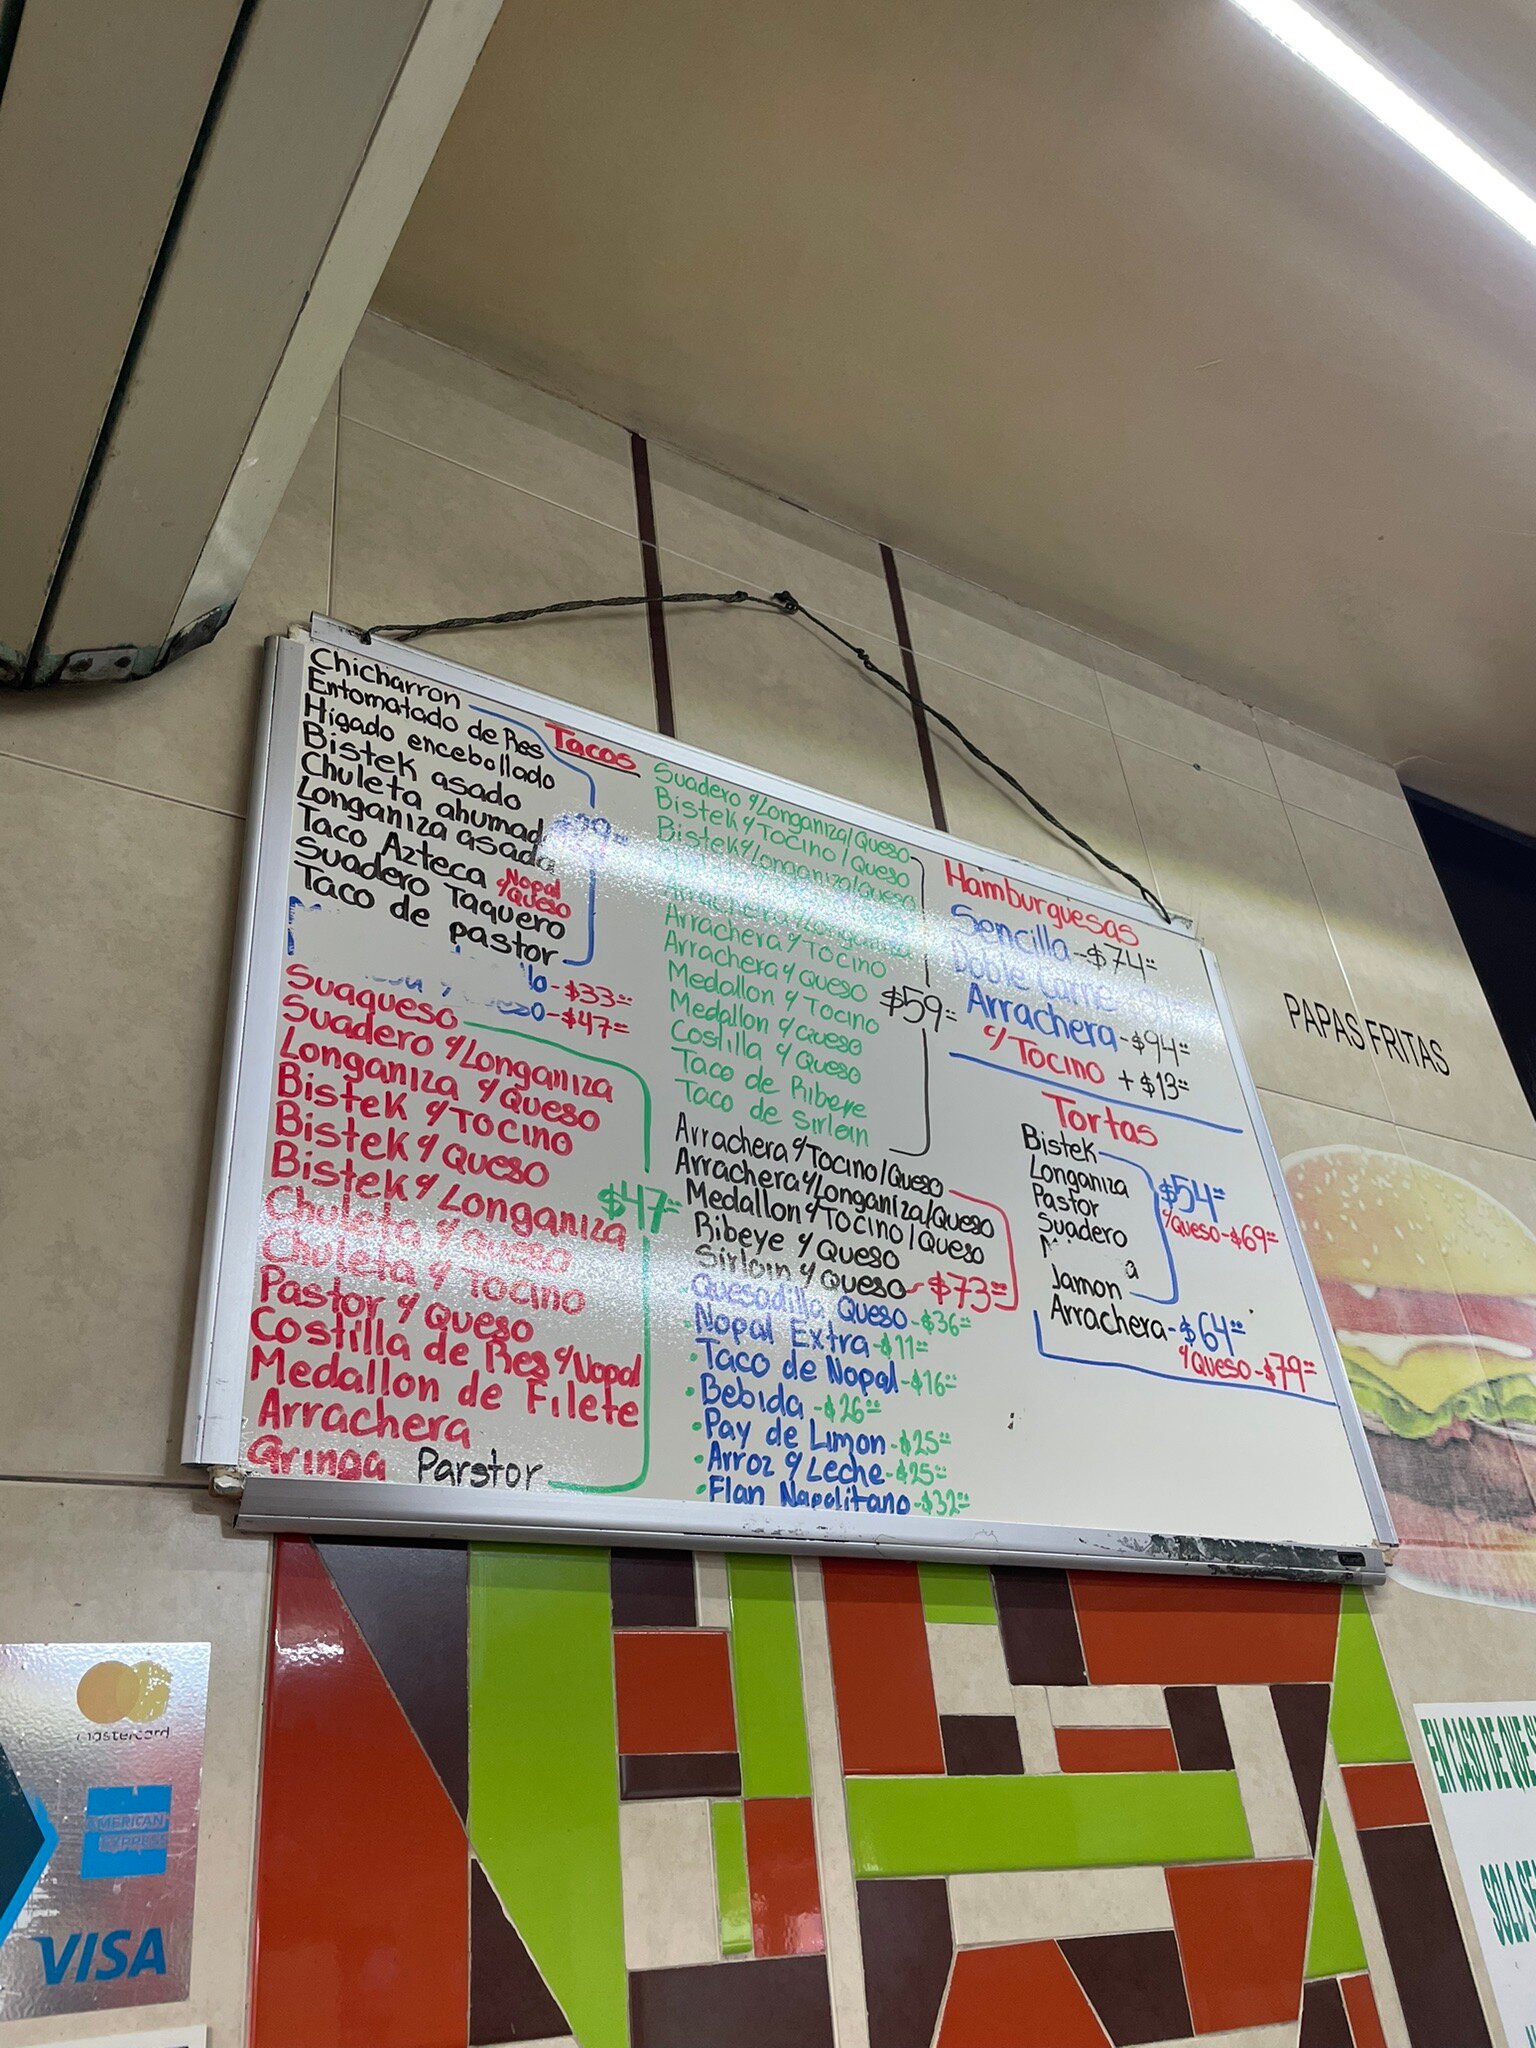 Tacos
Chicharron
Entomatado de Res
Higado encebollado
Bistek asado
Chuleta ahumada
Longaniza asada
Taco Azteca Nopal
c/Queso
Suadero Taquero
Taco de pastor
$33=
$47=
Suaqueso
Suadero c/Longaniza
Longaniza c/Queso
Bistek c/Tocino
Bistek c/Queso
Bistek c/Longaniza
$47=
Chuleta c/Queso
Chuleta c/Tocino
Pastor c/Queso
Costilla de Res c/Nopal
Medallon de Filete
Arrachera
Gringa Parstor
Suadero c/Longaniza/Queso
Bistek c/Tocino/Queso
Bistek c/Longaniza/Queso
Arrachera c/Longaniza
Arrachera c/Tocino
Arrachera c/Queso
$59=
Medallon c/Tocino
Medallon c/Queso
Costilla c/Queso
Taco de Ribeye
Taco de Sirloin
Arrachera c/Tocino/Queso
Arrachera c/Longaniza/Queso
Medallon c/Tocino/Queso
Ribeye c/Queso
Sirloin c/Queso - $73=
Quesadilla Queso - $36=
• Nopal Extra - $11=
• Taco de Nopal - $16=
• Bebida - $26=
• Pay de Limon - $25=
• Arroz c/Leche - $25=
• Flan Napolitano - $32=
Hamburguesas
Sencilla - $74=
Doble Carne
Arrachera - $94=
c/Tocino + $13=
Tortas
Bistek
Longaniza
$54=
Pastor
c/Queso - $69=
Suadero
Jamon
Arrachera - $64=
c/Queso - $79=
PAPAS FRITAS
mastercard
AMERICAN
EXPRESS
VISA
EN CASO DE QUE